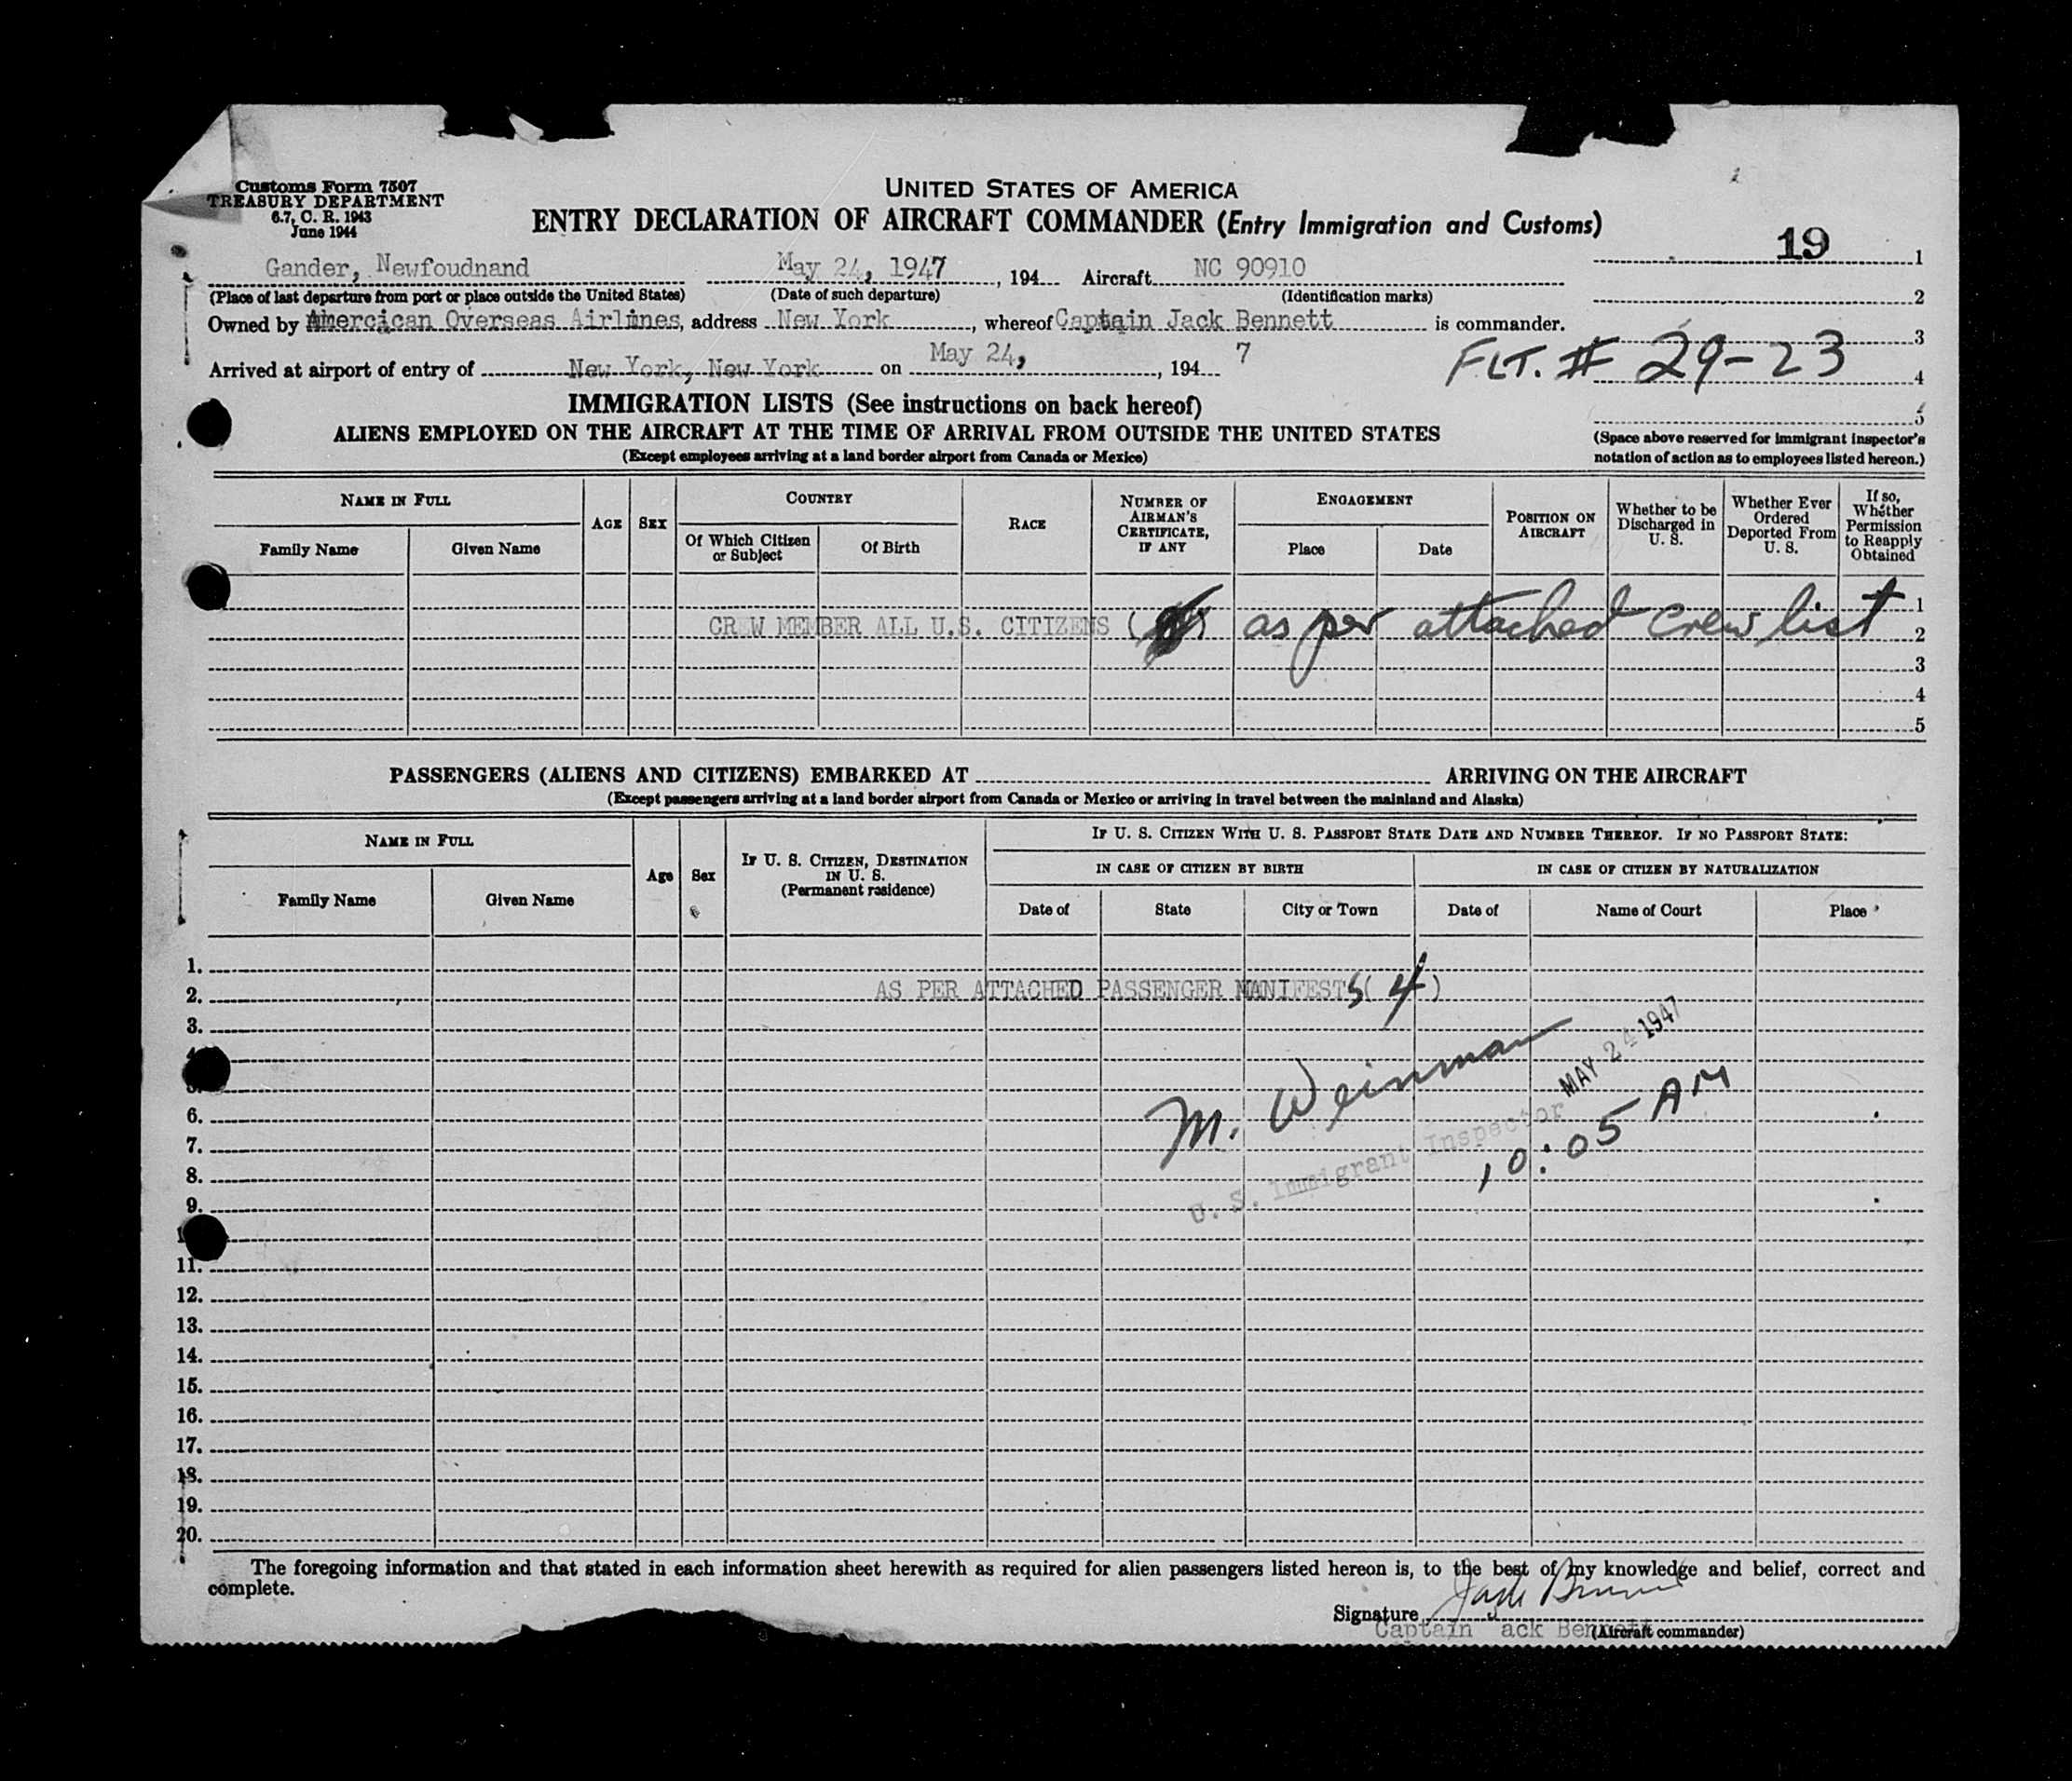 Customs Form 7507
TREASURY DEPARTMENT
6.7, C. R. 1943
June 1944
UNITED STATES OF AMERICA
ENTRY DECLARATION OF AIRCRAFT COMMANDER (Entry Immigration and Customs)
19 1
Gander, Newfoudnand May 24, 1947, 194 Aircraft NC 90910
(Place of last departure from port or place outside the United States) (Date of such departure) (Identification marks) 2
Owned by Amercican Overseas Airlines, address New York, whereof Captain Jack Bennett is commander.
3
FLT. # 29-23
4
Arrived at airport of entry of New York, New York on May 24, 194 7
IMMIGRATION LISTS (See instructions on back hereof)
5
ALIENS EMPLOYED ON THE AIRCRAFT AT THE TIME OF ARRIVAL FROM OUTSIDE THE UNITED STATES
(Except employees arriving at a land border airport from Canada or Mexico)
(Space above reserved for immigrant inspector's
notation of action as to employees listed hereon.)
NAME IN FULL
Family Name
Given Name
AGE
SEX
COUNTRY
Of Which Citizen
or Subject
Of Birth
RACE
NUMBER OF
AIRMAN'S
CERTIFICATE,
IF ANY
ENGAGEMENT
Place
Date
POSITION ON
AIRCRAFT
Whether to be
Discharged in
U. S.
Whether Ever
Ordered
Deported From
U. S.
If so,
Whether
Permission
to Reapply
Obtained
1
CREW MEMBER ALL U.S. CITIZENS ( ) as per attached crew list 2
3
4
5
PASSENGERS (ALIENS AND CITIZENS) EMBARKED AT ARRIVING ON THE AIRCRAFT
(Except passengers arriving at a land border airport from Canada or Mexico or arriving in travel between the mainland and Alaska)
NAME IN FULL
Family Name
Given Name
Age
Sex
IF U. S. CITIZEN, DESTINATION
IN U. S.
(Permanent residence)
IF U. S. CITIZEN WITH U. S. PASSPORT STATE DATE AND NUMBER THEREOF. IF NO PASSPORT STATE:
IN CASE OF CITIZEN BY BIRTH
IN CASE OF CITIZEN BY NATURALIZATION
Date of
State
City or Town
Date of
Name of Court
Place
1.
2. AS PER ATTACHED PASSENGER MANIFESTS (4)
3.
M. Weinman
MAY 24 1947
10:05 AM
U. S. Immigrant Inspector
6.
7.
8.
9.
11.
12.
13.
14.
15.
16.
17.
18.
19.
20.
The foregoing information and that stated in each information sheet herewith as required for alien passengers listed hereon is, to the best of my knowledge and belief, correct and
complete.
Signature Jack Bennett
Captain ack Bennett
(Aircraft commander)